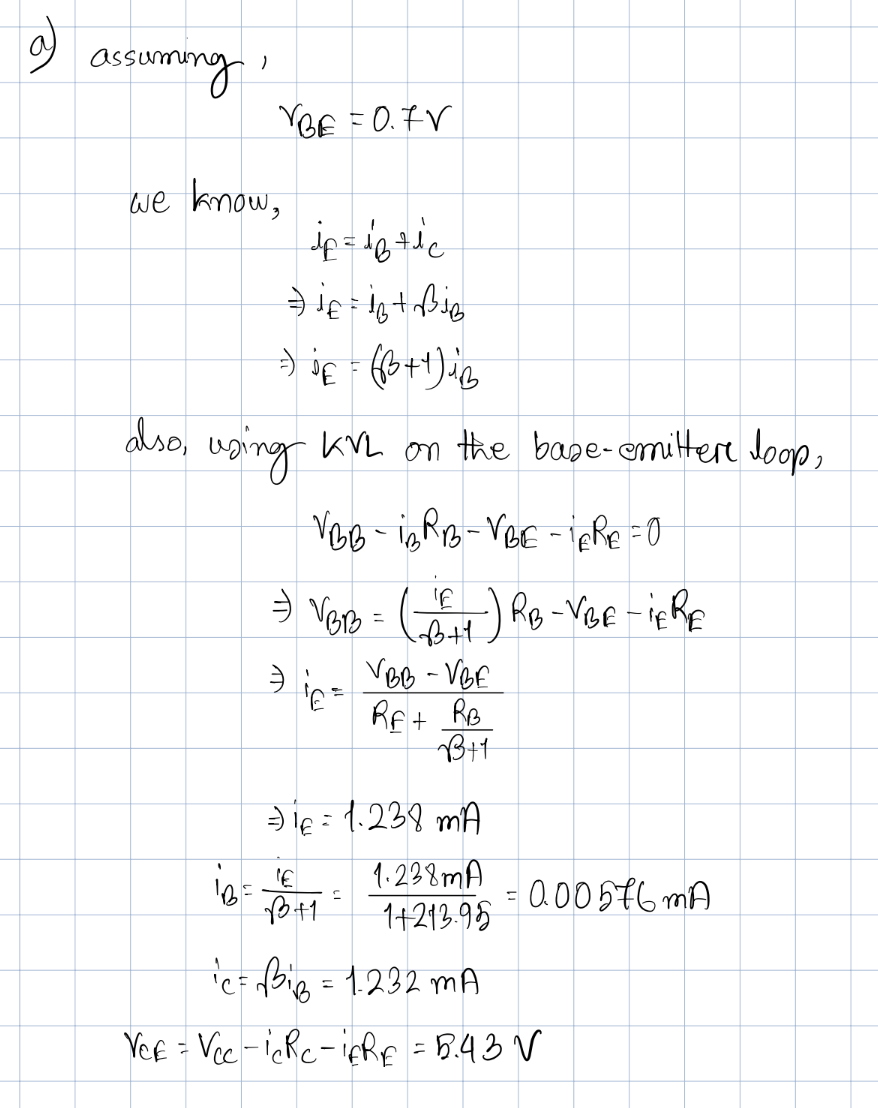 a) assuming,
V_BE = 0.7V
we know,
i_E = i_B + i_C
⇒ i_E = i_B + βi_B
⇒ i_E = (β+1)i_B
also, using KVL on the base-emittere loop,
V_BB - i_B R_B - V_BE - i_E R_E = 0
⇒ V_BB = (i_E/(β+1)) R_B - V_BE - i_E R_E
⇒ i_E = (V_BB - V_BE)/(R_E + R_B/(β+1))
⇒ i_E = 1.238 mA
i_B = i_E/(β+1) = 1.238mA/(1+213.95) = 0.00576 mA
i_C = βi_B = 1.232 mA
V_CE = V_CC - i_C R_C - i_E R_E = 5.43 V